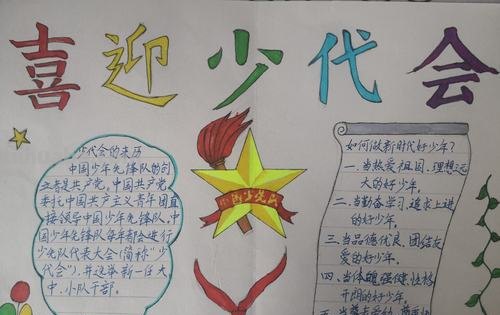 喜迎少代会
少代会的来历
中国少年先锋队的创
立者是共产党。中国共产党
委托中国共产主义青年团直
接领导中国少年先锋队。中
国少年先锋队每年都会进行
少先队代表大会(简称“少
代会”)，并选举新一任大
中、小队干部。
中国少先队
如何做新时代好少年？
一、当热爱祖国、理想远
大的好少年。
二、当勤奋学习、追求上进
的好少年。
三、当品德优良、团结友
爱的好少年。
四、当体魄强健、性格
开朗的好少年。